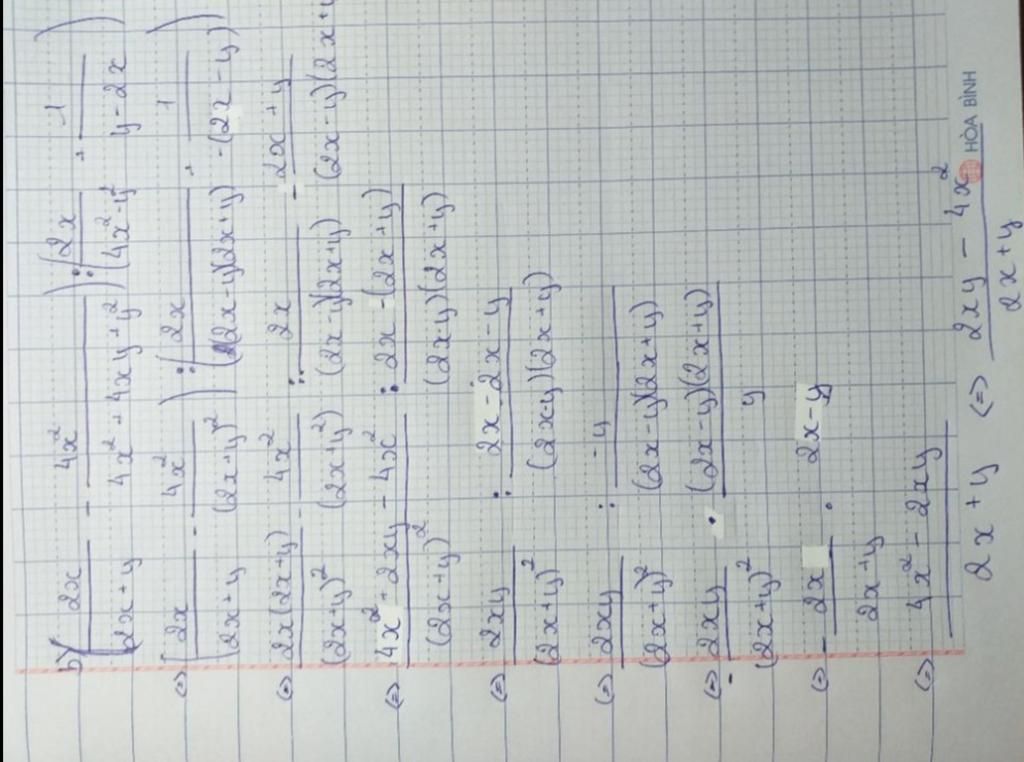 b) ( 2x/(2x+y) - 4x²/(4x²+4xy+y²) ) : ( 2x/(4x²-y²) + 1/(y-2x) )
(=) ( 2x/(2x+y) - 4x²/(2x+y)² ) : ( 2x/((2x-y)(2x+y)) + 1/(-(2x-y)) )
(=) 2x(2x+y)/(2x+y)² - 4x²/(2x+y²) : 2x/((2x-y)(2x+y)) - (2x+y)/((2x-y)(2x+y
(=) (4x²+2xy-4x²)/(2x+y)² : (2x-(2x+y))/((2x-y)(2x+y))
(=) 2xy/(2x+y)² : (2x-2x-y)/((2x-y)(2x+y))
(=) 2xy/(2x+y)² : -y/((2x-y)(2x+y))
(=) - 2xy/(2x+y)² . (2x-y)(2x+y)/y
(=) - 2x/(2x+y) . 2x-y
(=) (4x²-2xy)/(2x+y) (=) (2xy-4x²)/(2x+y)
HÒA BÌNH